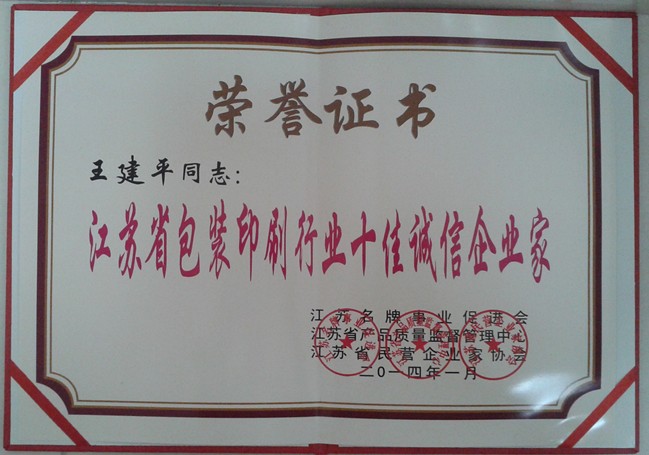 荣誉证书
王建平同志:
江苏省包装印刷行业十佳诚信企业家
江苏名牌事业促进会
江苏省产品质量监督管理中心
江苏省民营企业家协会
二0一四年一月